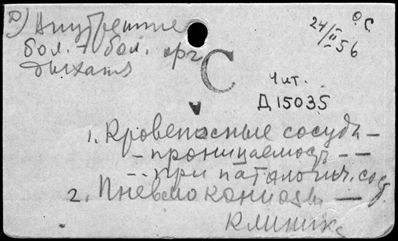 Р) Внутренние
24/II 56
°С
бол. 7 бол. орг
дыхат
С
Чит.
Д15035
1. Кровеносные сосуды —
- проницаемость - —
- - при патологич. сос
2. Пневмокониозы —
клиника